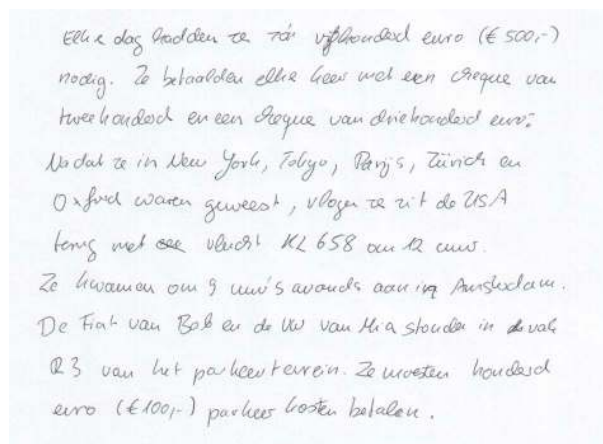 Elke dag hadden ze zo'n vijfhonderd euro (€ 500,-)
nodig. Ze betaalden elke keer met een cheque van
tweehonderd en een cheque van driehonderd euro.
Nadat ze in New York, Tokyo, Parijs, Zürich en
Oxford waren geweest, vlogen ze uit de USA
terug met vlucht KL 658 om 12 uur.
Ze kwamen om 9 uur 's avonds aan in Amsterdam.
De Fiat van Bob en de VW van Mia stonden in vak
R3 van het parkeerterrein. Ze moesten honderd
euro (€ 100,-) parkeer kosten betalen.